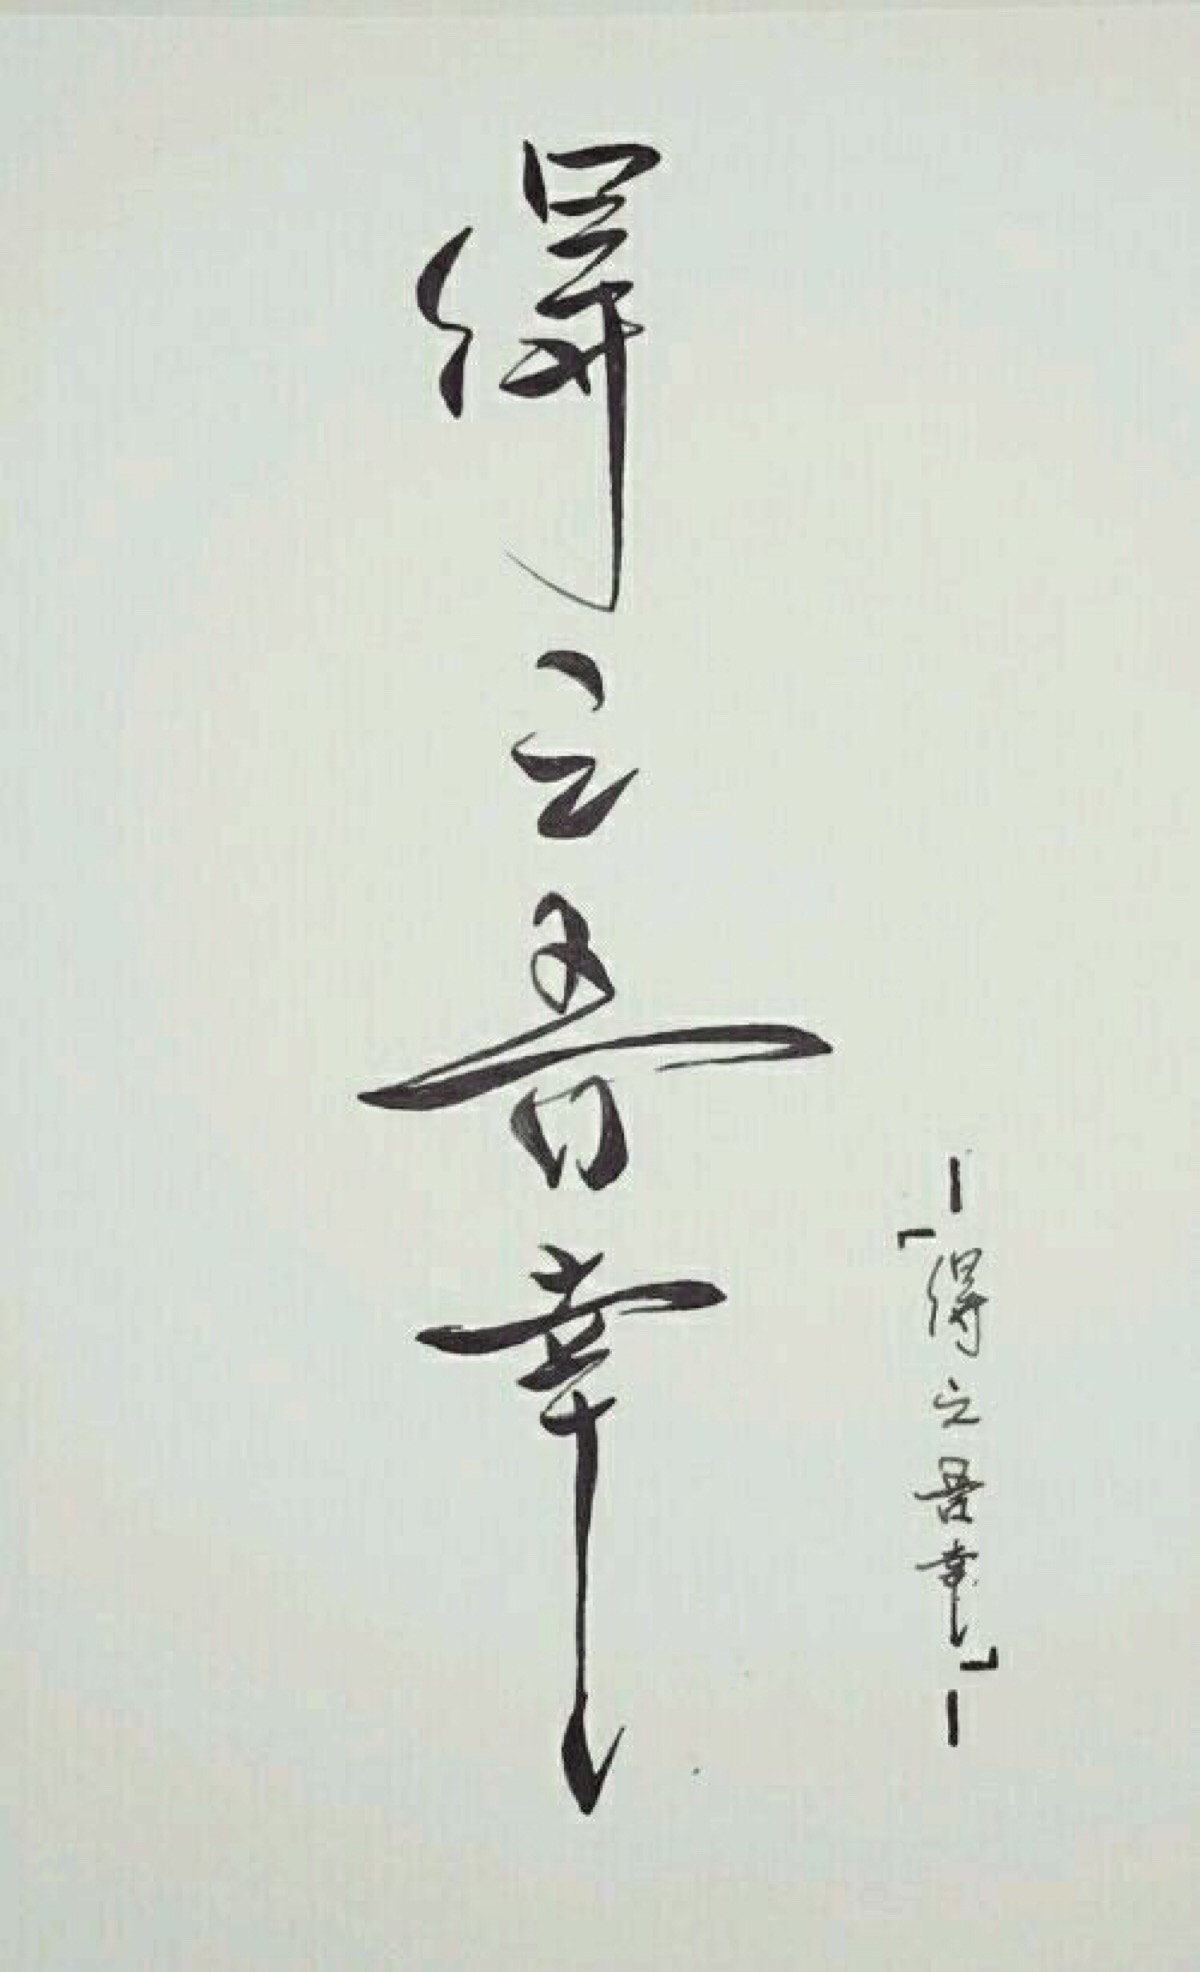 得之吾幸
—「得之吾幸」—